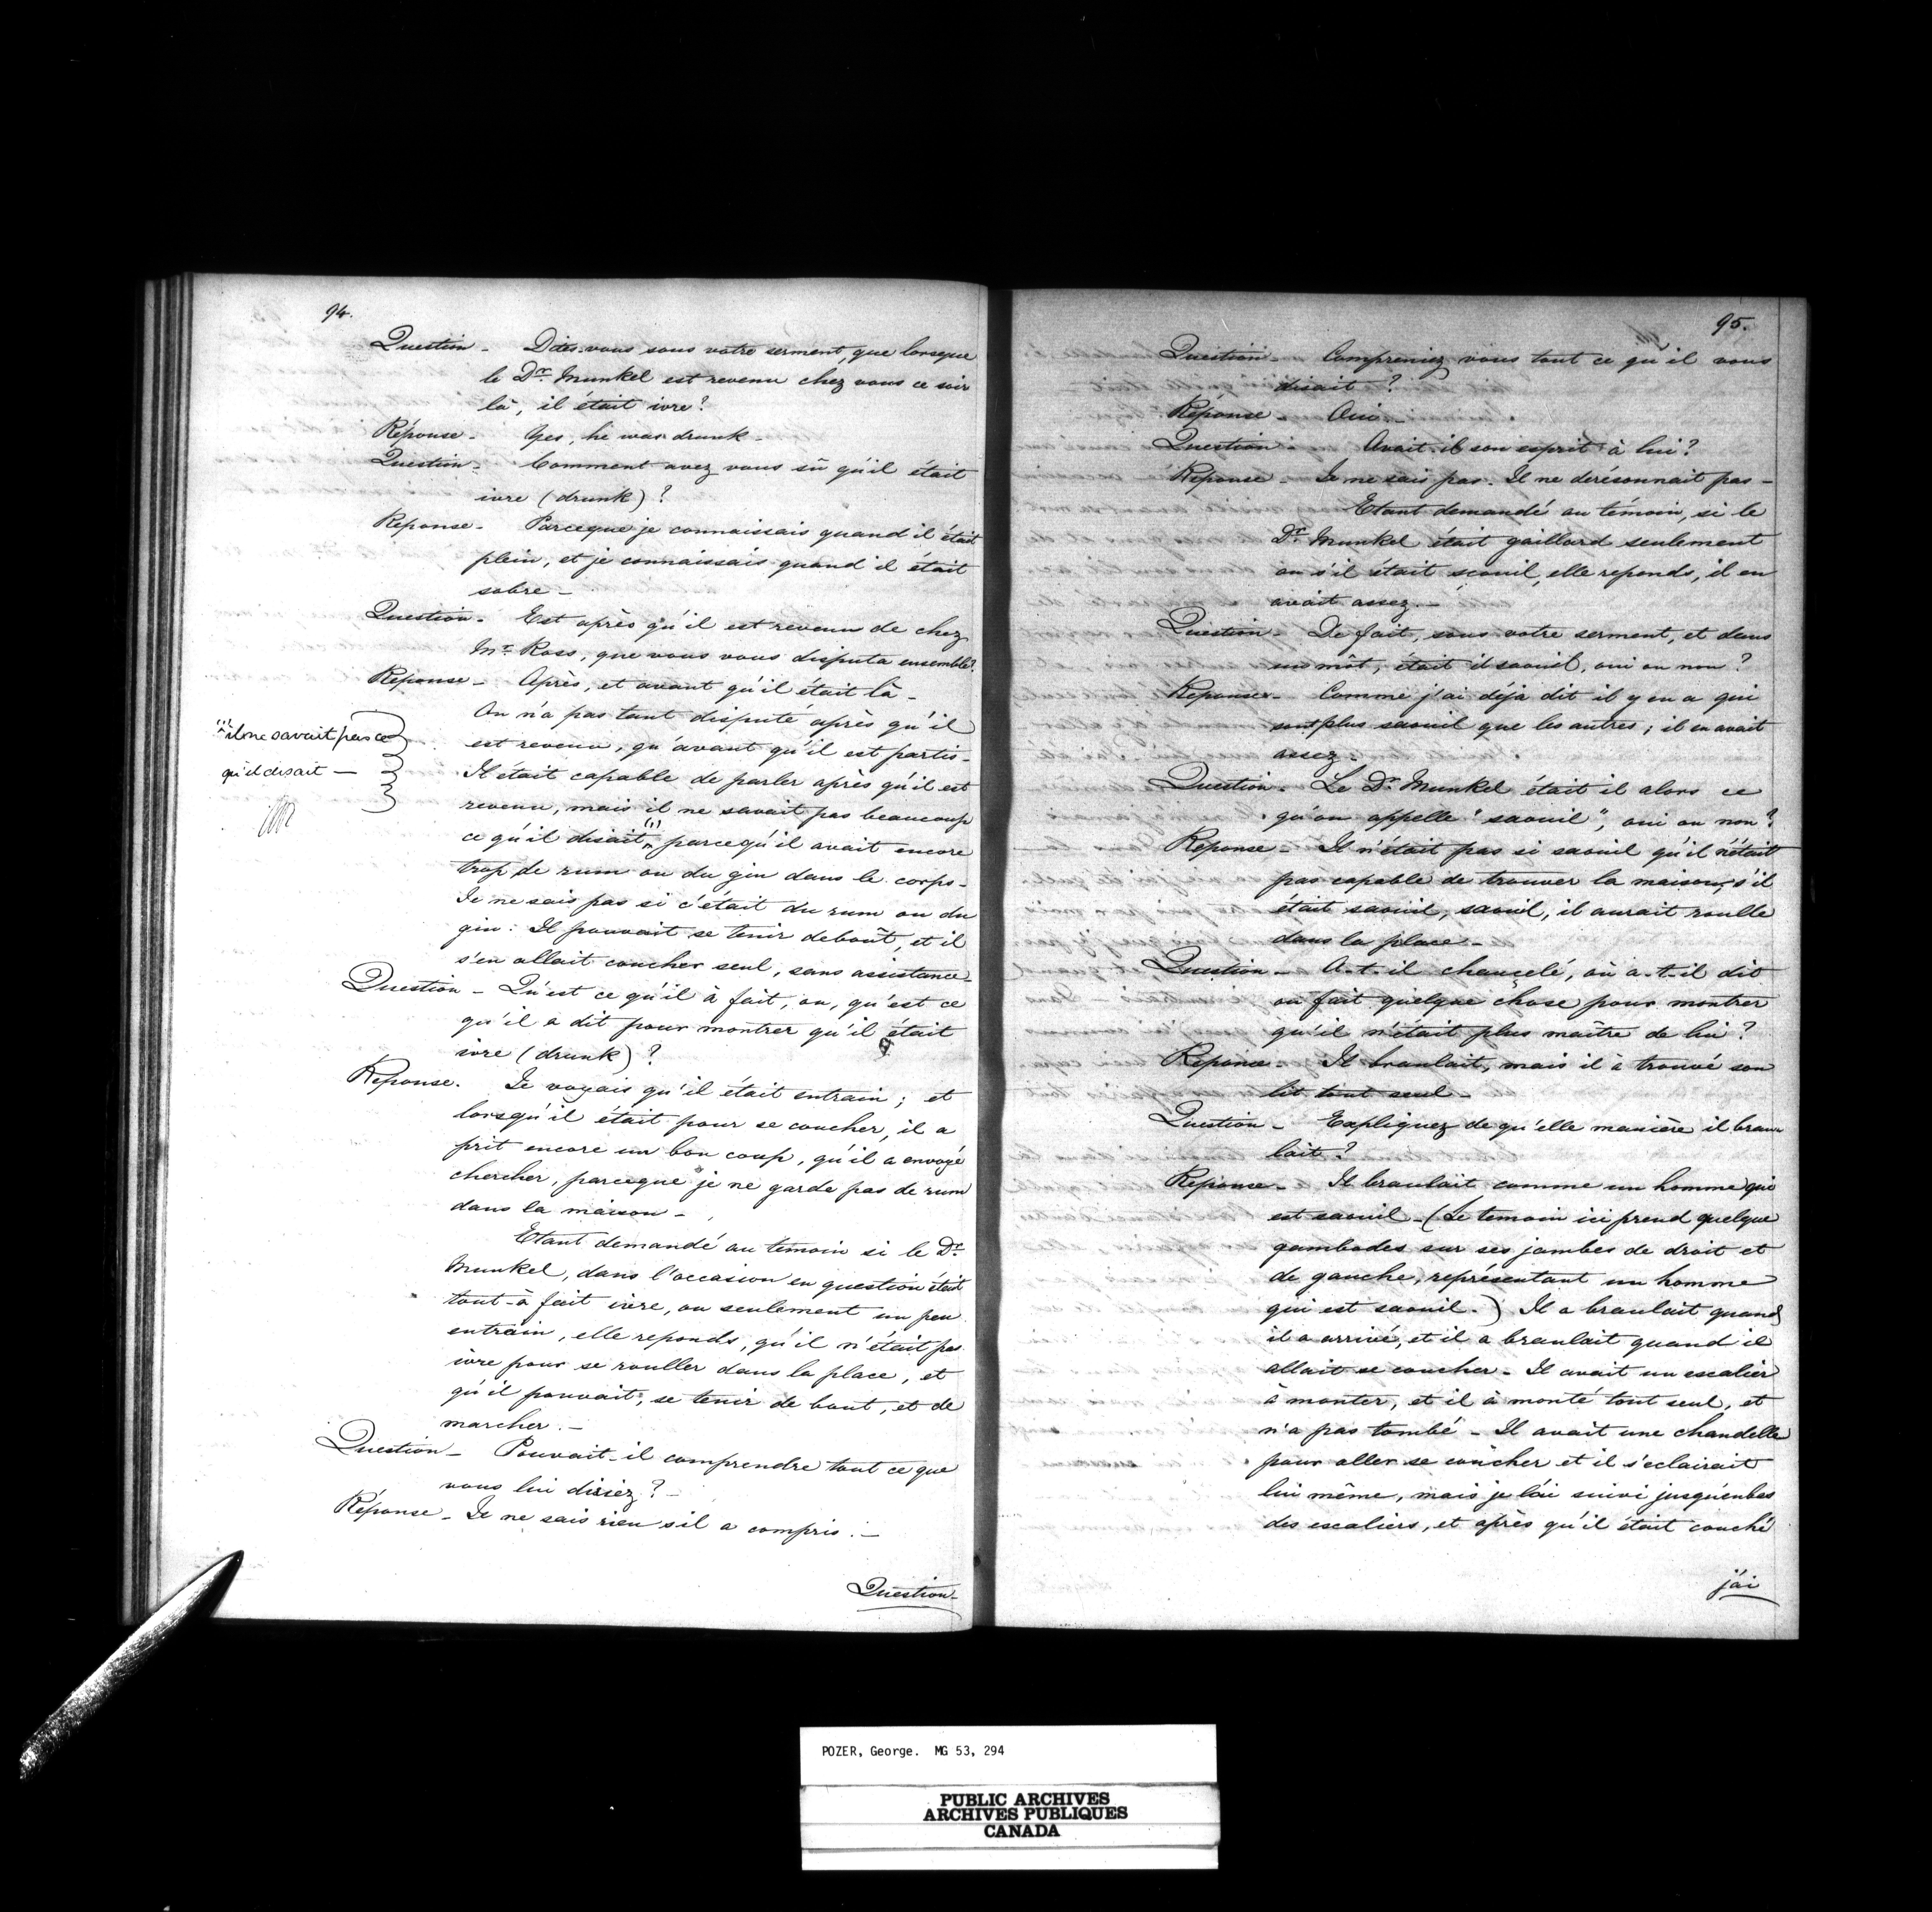 94.
Question - Dites-vous sous votre serment, que lorsque
le Dr. Munkel est revenu chez vous ce soir
là, il était ivre?
Réponse - Yes, he was drunk -
Question - Comment avez vous sû qu'il était
ivre (drunk)?
Reponse - Parceque je connaissais quand il était
plein, et je connaissais quand il était
sobre -
Question - Est après qu'il est revenu de chez
Mr. Ross, que vous vous disputa ensemble?
Reponse - Après, et avant qu'il était là -
On n'a pas tant disputé après qu'il
est revenu, qu'avant qu'il est partis -
Il était capable de parler après qu'il est
revenu, mais il ne savait pas beaucoup
ce qu'il disait (1) parcequ'il avait encore
trop de rum ou du gin dans le corps -
Je ne sais pas si c'était du rum ou du
gin: Il pouvait se tenir deboût, et il
s'en allait coucher seul, sans assistance -
(1) il ne savait pas ce
qu'il disait —
Question - Qu'est ce qu'il à fait, ou, qu'est ce
qu'il a dit pour montrer qu'il était
ivre (drunk)?
Reponse. Je voyais qu'il était entrain; et
lorsqu'il était pour se coucher, il a
prit encore un bon coup, qu'il a envoyé
chercher, parceque je ne garde pas de rum
dans la maison -
Etant demandé au temoin si le Dr.
Munkel, dans l'occasion en question était
tout-à fait ivre, ou seulement un peu
entrain, elle reponds, qu'il n'était pas
ivre pour se rouller dans la place, et
qu'il pouvait, se tenir de bout, et de
marcher. -
Question - Pouvait-il comprendre tout ce que
vous lui disiez? -
Réponse - Je ne sais rien s'il a compris. -
Question -
95.
Question - Compreniez vous tout ce qu'il vous
disait?
Réponse - Oui -
Question - Avait-il son esprit à lui?
Reponse - Je ne sais pas. Il ne derésonnait pas -
Etant demandé au témoin, si le
Dr. Munkel était gaillard seulement
ou s'il était scouil, elle reponds, il en
avait assez. -
Question - De fait, sous votre serment, et dans
un môt, était il saouil, oui ou non?
Reponse - Comme j'ai déja dit il y en a qui
sont plus saouil que les autres; il en avait
assez -
Question - Le Dr. Munkel était il alors ce
qu'on appelle "saouil", oui ou non?
Reponse - Il n'était pas si saouil qu'il n'était
pas capable de trouver la maison, s'il
était saouil, saouil, il aurait roulle
dans la place -
Question - A-t-il chancelé, où a-t-il dit
ou fait quelque chose pour montrer
qu'il n'était plus maître de lui?
Reponse - Il braulait, mais il à trouvé son
lit tout seul -
Question - Expliquez de qu'elle manière il brau
lait?
Reponse - Il braulait comme un homme qui
est saouil - (Le temoin ici prend quelque
gambades sur ses jambes de droit et
de gauche, représentant un homme
qui est saouil.) Il a braulait quand
il a arrivé, et il a braulait quand il
allait se coucher - Il avait un escalier
à monter, et il à monté tout seul, et
n'a pas tombé - Il avait une chandelle
pour aller se coucher et il s'eclairait
lui même, mais je l'ai suivi jusqu'enbas
des escaliers, et après qu'il était couché
j'ai
POZER, George. MG 53, 294
PUBLIC ARCHIVES
ARCHIVES PUBLIQUES
CANADA